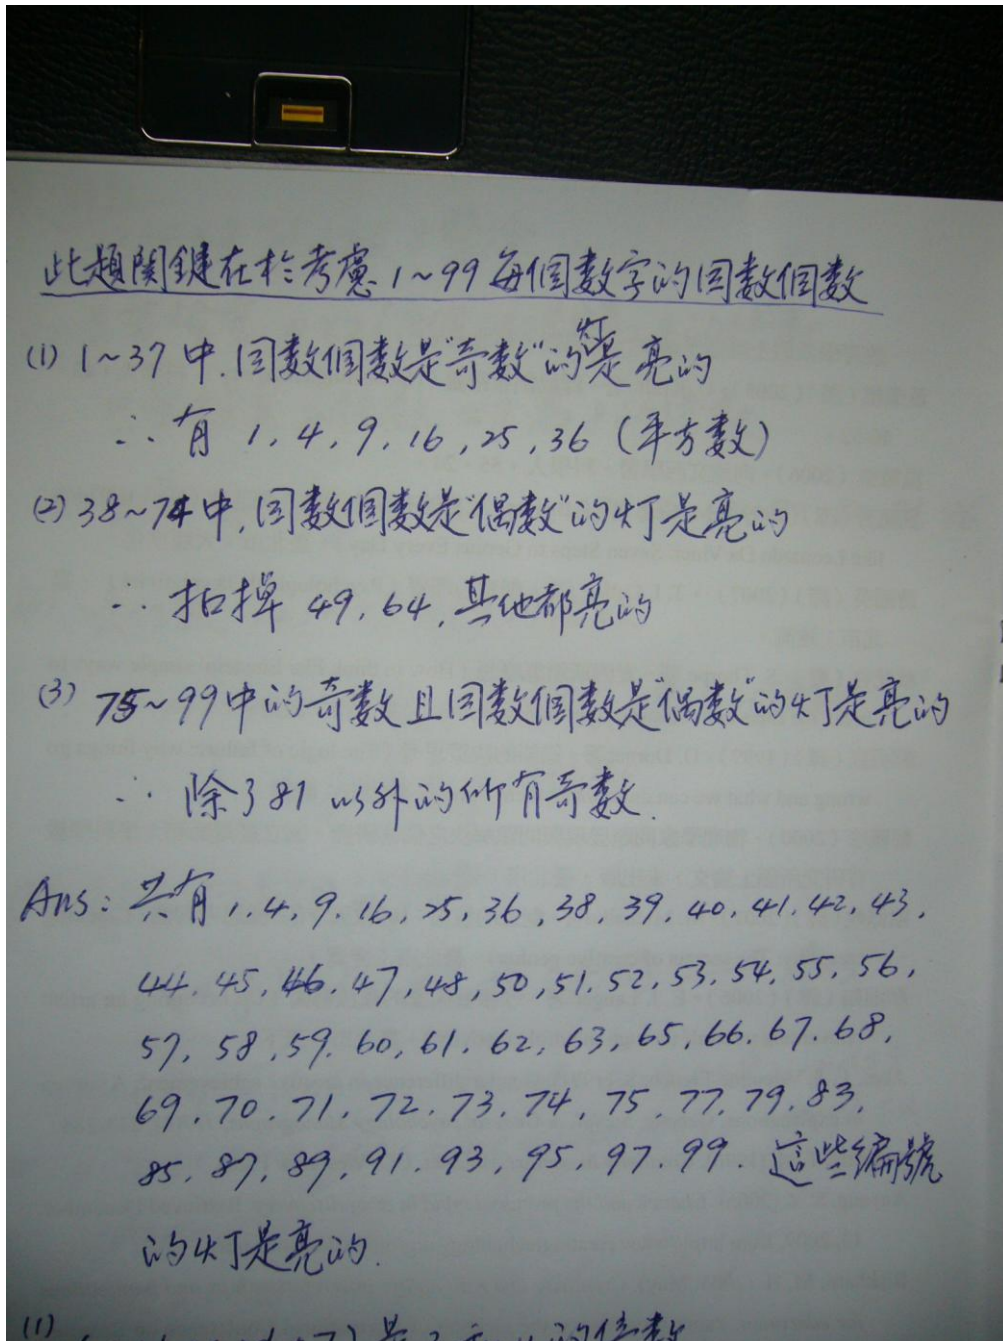 此題関鍵在於考慮 1~99 每個数字的因数個数
(1) 1~37 中, 因数個数是"奇数"的灯是亮的
∴ 有 1, 4, 9, 16, 25, 36 (平方數)
(2) 38~74 中, 因数個数是"偶数"的灯是亮的
∴ 扣掉 49, 64, 其他都亮的
(3) 75~99 中的奇数且因数個数是"偶数"的灯是亮的
∴ 除了 81 以外的所有奇数.
Ans: 共有 1, 4, 9, 16, 25, 36, 38, 39, 40, 41, 42, 43,
44, 45, 46, 47, 48, 50, 51, 52, 53, 54, 55, 56,
57, 58, 59, 60, 61, 62, 63, 65, 66, 67, 68,
69, 70, 71, 72, 73, 74, 75, 77, 79, 83,
85, 87, 89, 91, 93, 95, 97, 99. 這些編號
的灯是亮的.
(1)